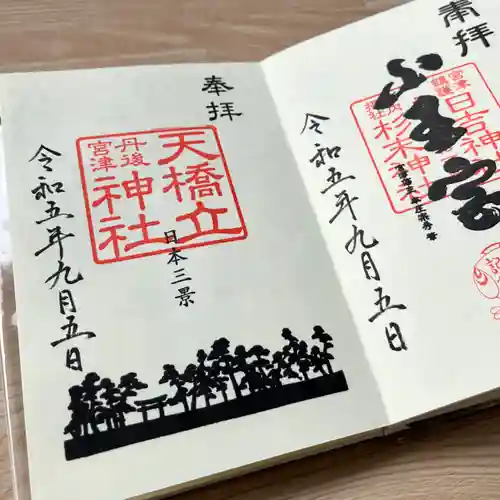 奉拝
天橋立
丹後
宮津
神社
日本三景
令和五年九月五日
奉拝
山王宮
宮津
鎮護
日吉神
境内
摂社
杉末神社
令和五年九月五日